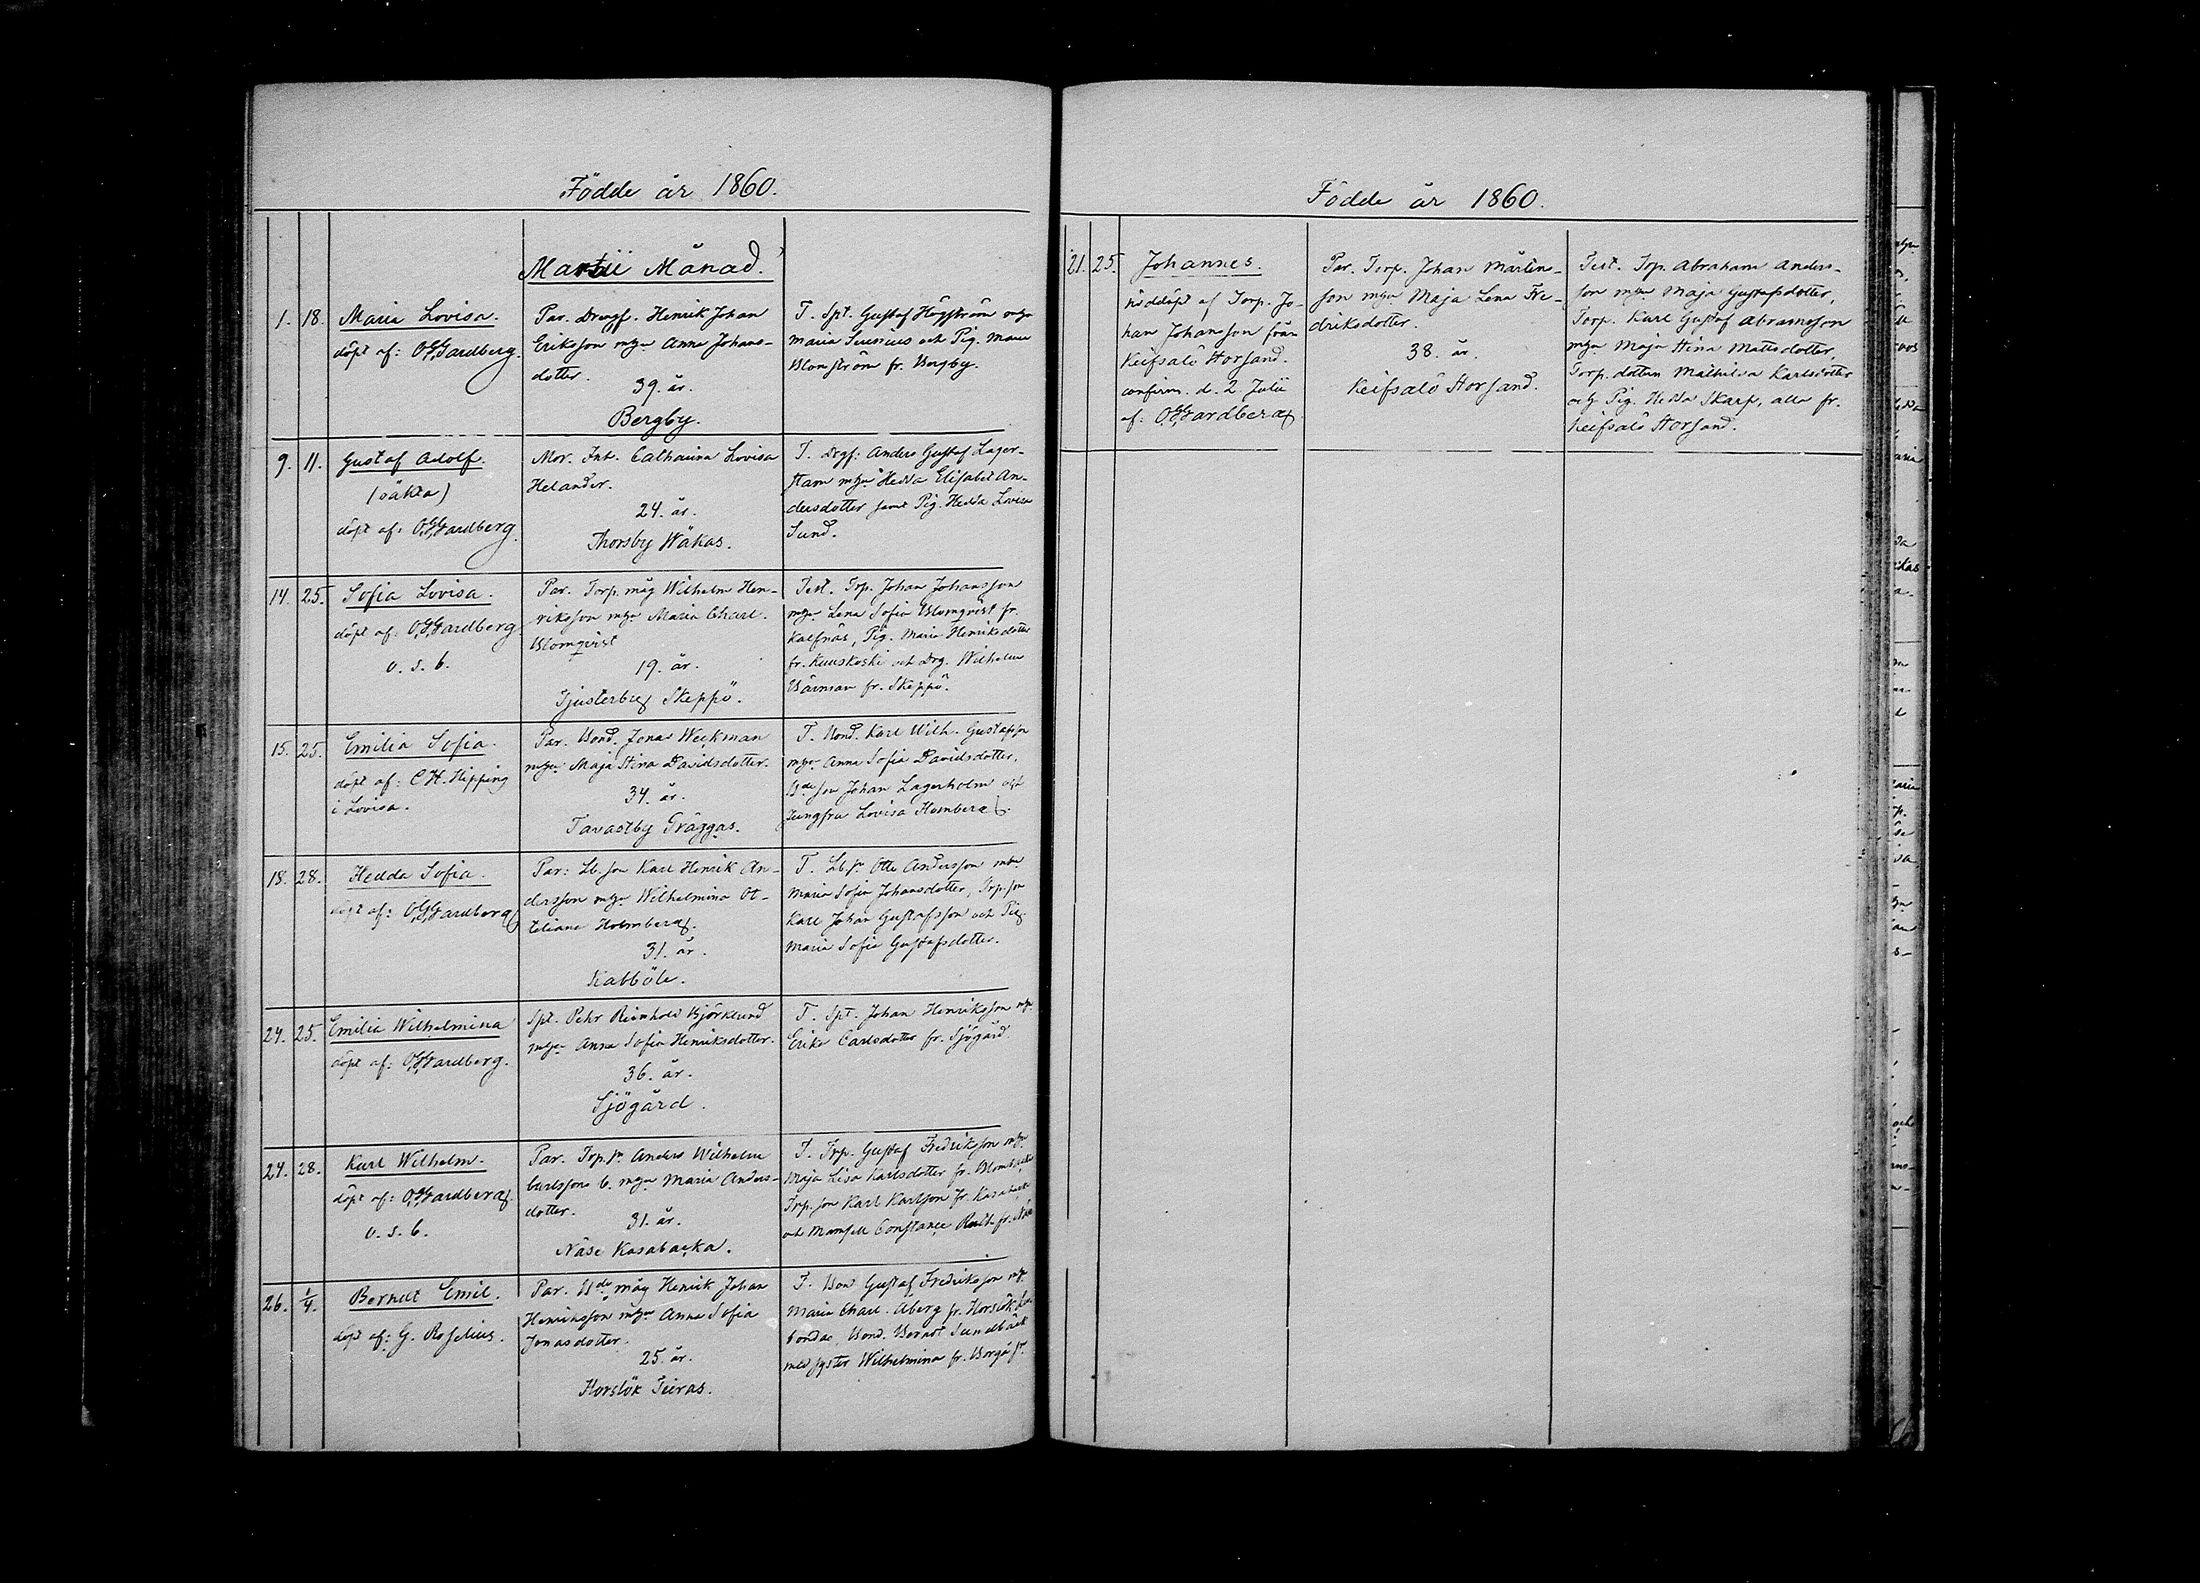 Födde år 1860.
Martii Månad.
1. 18. Maria Lovisa.
döpt af: O.G.Gardberg.
Par. Drngf. Henrik Johan
Eriksson mtga Anna Johans-
dotter.
39. år.
Bergby.
T. Spt. Gustaf Högström mtga
Maria och Pig. Maria
Blomström fr. Bergby.
9. 11. Gustaf Adolf.
(oäkta)
döpt af: O.G.Gardberg.
Mor. Inh. Catharina Lovisa
Helander.
24. år.
Thorsby Wäkas.
T. Drgf: Anders Gustaf Lager-
stam mtga Hedda Elisabet An-
dersdotter samt Pig. Hedda Lovisa
Sund.
14. 25. Sofia Lovisa.
döpt af: O.G.Gardberg.
v. s. b.
Par. Torp. måg Wilhelm Hen-
riksson mtga Maria Charl.
Blomqvist
19. år.
Tjusterby Skeppö.
Test. Trp. Johan Johansson
mtga Lena Sofia Blomqvist fr.
Kalfnäs, Pig. Maria Henriksdotter
fr. Kuuskoski och Drg. Wilhelm
fr. Skeppö.
15. 25. Emilia Sofia.
döpt af: C.H. Hipping
i Lovisa.
Par. Bond. Jonas Weckman
mtga Maja Stina Davidsdotter.
34. år.
Tavastby Gräggas.
T. Bond. Karl Wilh. Gustafsson
mtga Anna Sofia Davidsdotter,
Bde son Johan Lagerholm och
Jungfru Lovisa Homberg.
18. 28. Hedda Sofia.
döpt af: O.G.Gardberg
Par: Lb. son Karl Henrik An-
dersson mtga Wilhelmina Ot-
tiliana Holmberg.
31. år.
Kabböle.
T. Lb. sn Otto Andersson mtga
Maria Sofia Johansdotter, Trp. son
Karl Johan Gustafsson och Pig.
Maria Sofia Gustafsdotter.
24. 25. Emilia Wilhelmina
döpt af: O.G.Gardberg.
Spt. Pehr Reinhold Björklund
mtga Anna Sofia Henriksdotter.
36. år.
Sjögård.
T. Spt. Johan Henriksson mtga
Erika Carlsdotter fr. Sjögård.
24. 28. Karl Wilhelm.
döpt af: O.G.Gardberg.
v. s. b.
Par. Trp. sn Anders Wilhelm
Carlssons b. mtga Maria Anders-
dotter.
31. år.
Näse Kasabacka.
T. Trp. Gustaf Fredriksson mtga
Maja Lisa Karlsdotter fr.
Trp. son Karl Karlsson fr.
och Mamsell Constance fr.
26. 1/4. Berndt Emil.
döpt af: G. Roselius.
Par. Bde måg Henrik Johan
Henriksson mtga Anna Sofia
Jonasdotter.
25. år.
Horslök Tieras.
T. Bond Gustaf Fredriksson mtga
Maria Charl. Åberg fr. Horslök,
Bond. Berndt Sundbäck
med syster Wilhelmina fr. Borgå sn.
Födde år 1860.
21. 25. Johannes.
nöddöpt af Torp. Jo-
han Johansson från
Keifsalö Storsand.
confirm. d. 2 Julii
af: O.G.Gardberg.
Par. Torp. Johan Mårtens-
son mtga Maja Lena Fre-
driksdotter.
38. år.
Keifsalö Storsand.
Test. Torp. Abraham Anders-
son mtga Maja Gustafsdotter,
Torp. Karl Gustaf Abramsson
mtga Maja Stina Mattsdotter,
Torp. dottern Mathilda Karlsdotter
och Pig. Hedda Skarp, alla fr.
Keifsalö Storsand.